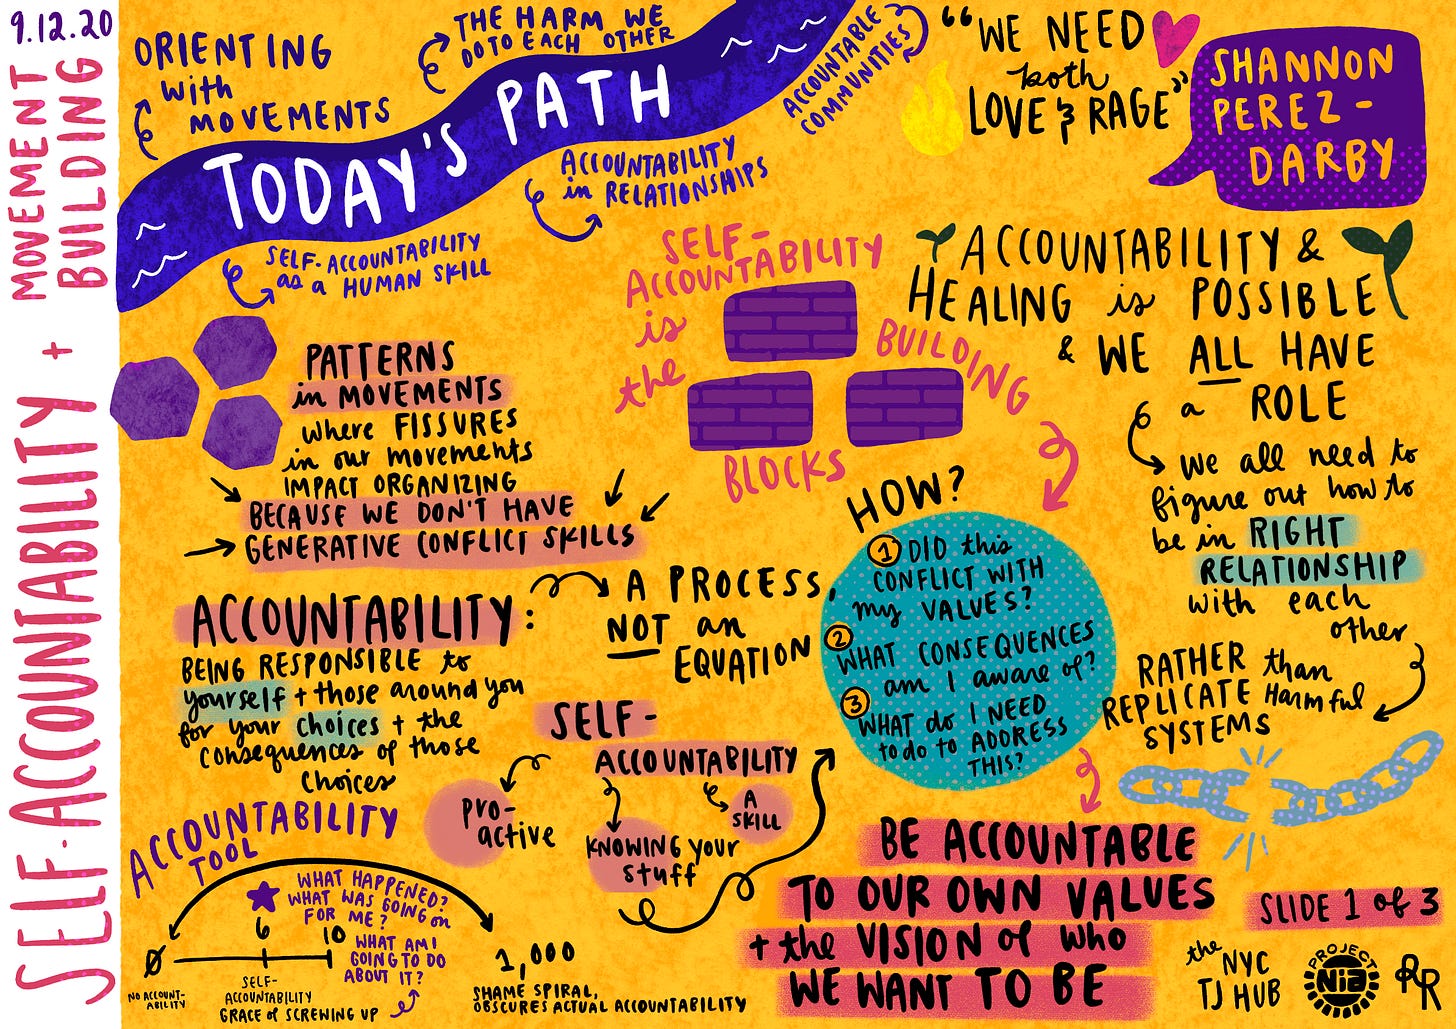 9.12.20
SELF-ACCOUNTABILITY + MOVEMENT
BUILDING
ORIENTING
with
MOVEMENTS
THE HARM WE
DO TO EACH OTHER
TODAY'S PATH
ACCOUNTABLE
COMMUNITIES
ACCOUNTABILITY
in RELATIONSHIPS
SELF-ACCOUNTABILITY
as a HUMAN SKILL
"WE NEED
both
LOVE & RAGE"
SHANNON
PEREZ-
DARBY
PATTERNS
in MOVEMENTS
where FISSURES
in our movements
IMPACT ORGANIZING
BECAUSE WE DON'T HAVE
GENERATIVE CONFLICT SKILLS
SELF-
ACCOUNTABILITY
is
the
BUILDING
BLOCKS
ACCOUNTABILITY &
HEALING is POSSIBLE
& WE ALL HAVE
a ROLE
we all need to
figure out how to
be in RIGHT
RELATIONSHIP
with each
other
RATHER than
REPLICATE Harmful
SYSTEMS
ACCOUNTABILITY:
BEING RESPONSIBLE to
yourself + those around you
for your choices + the
consequences of those
choices
A PROCESS,
NOT an
EQUATION
HOW?
1 DID this
CONFLICT WITH
my VALUES?
2
WHAT CONSEQUENCES
am I aware of?
3
WHAT do I NEED
to do to ADDRESS
THIS?
SELF-
ACCOUNTABILITY
PRO-
active
KNOWING your
stuff
A
SKILL
BE ACCOUNTABLE
TO OUR OWN VALUES
+ the VISION of who
WE WANT TO BE
ACCOUNTABILITY
TOOL
WHAT HAPPENED?
WHAT WAS GOING on
FOR ME?
WHAT AM I
GOING TO DO
ABOUT IT?
0
6
10
1,000
NO ACCOUNT-
ABILITY
SELF-
ACCOUNTABILITY
GRACE of SCREWING UP
SHAME SPIRAL,
OBSCURES ACTUAL ACCOUNTABILITY
SLIDE 1 of 3
the NYC
TJ HUB
PROJECT
NIA